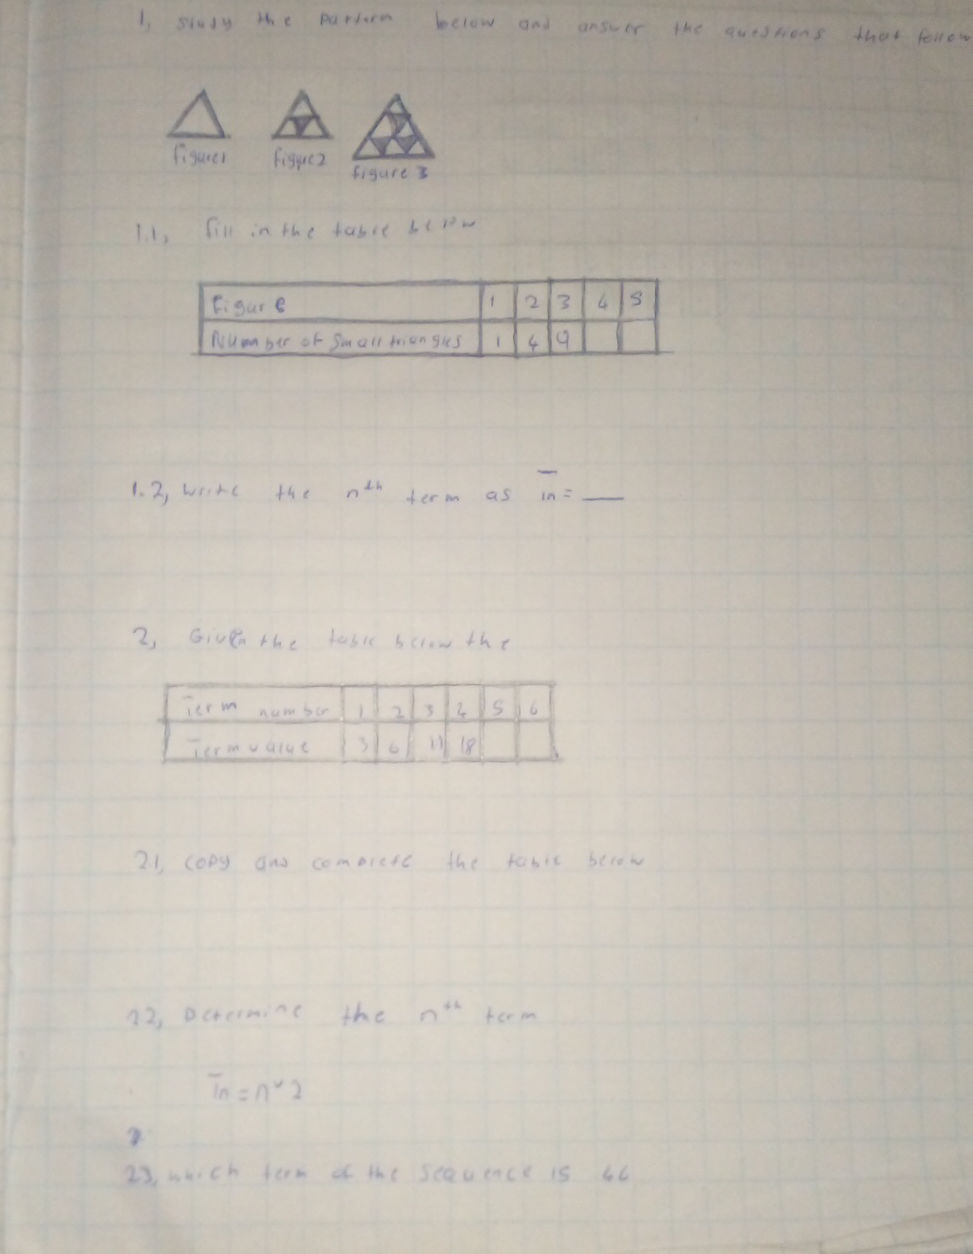 1, Study the pattern below and answer the questions that follow
figure1 figure2 figure 3
1.1, fill in the table below
Figure 1 2 3 4 5
Number of small triangles 1 4 9
1.2, write the nth term as Tn = __
2, Given the table below the
Term number 1 2 3 4 5 6
Term value 3 6 11 18
2.1, copy and complete the table below
22, Determine the nth term
Tn = n 2
23, which term of the sequence is 66